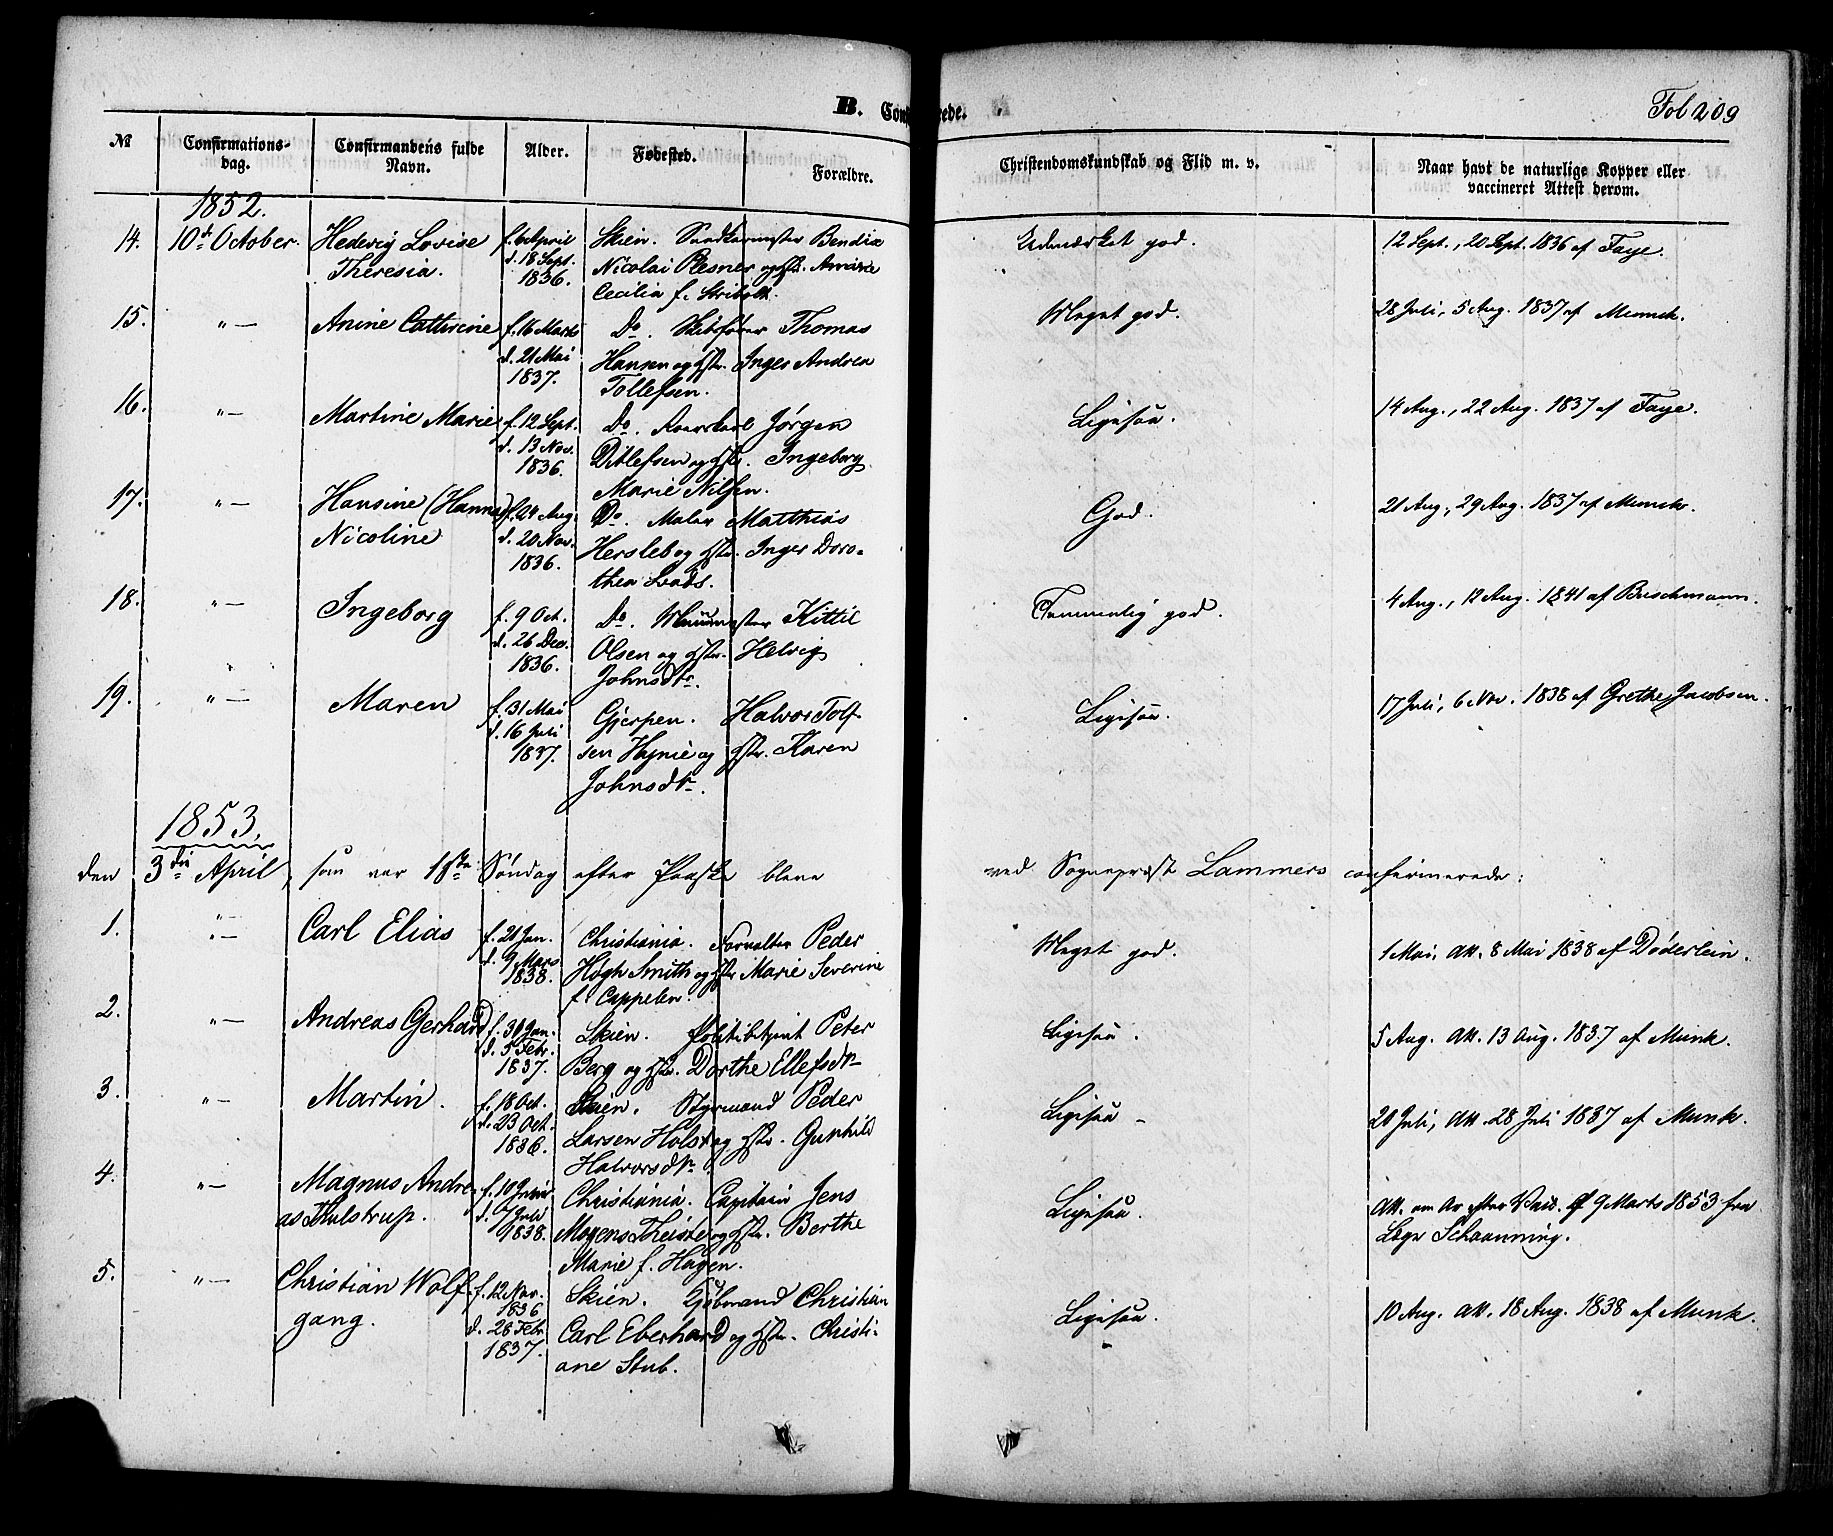 B. Conf rede.
Fol 209
№
Confirmations-dag.
Confirmandens fulde Navn.
Alder.
Fødested.
Forældre.
Christendomskundskab og Flid m. v.
Naar havt de naturlige Kopper eller vaccineret Attest derom.
1852.
14. 10d October. Hedevig Lovise f. 6 April Skien. Bendix Udmærket god. 12 Sept., 20 Sept. 1836 af Faye.
Theresia. d. 18 Sept. Nicolai Plesner og Hstr. Amine
1836. Cecilia f.
15. "— Anine Cathrine f. 16 Marts Do. Skibsfører Thomas Meget god. 28 Juli, 5 Aug. 1837 af Munck.
d. 21 Mai Hansen og Hstr. Inger Andrea
1837. Tollefsen.
16. "— Martine Marie f. 12 Sept. Do. Jørgen Ligesaa. 14 Aug., 22 Aug. 1837 af Faye.
d. 13 Nov. Ditlefsen og Hstr. Ingeborg
1836. Marie Nilsen.
17. "— Hansine (Hanna) f. 24 Aug. Do. Maler Matthias God. 21 Aug., 29 Aug. 1837 af Munck.
Nicoline d. 20 Nov. Hersleb og Hstr. Inger Doro-
1836. thea Lvads.
18. "— Ingeborg f. 9 Oct. Do. Kittil Temmelig god. 4 Aug., 12 Aug. 1841 af Buschmann.
d. 26 Dec. Olsen og Hstr. Helvig
1836. Johnsdtr.
19. "— Maren f. 31 Mai Gjerpen. Halvor Tolf- Ligesaa. 17 Juli, 6 Nov. 1838 af Grethe Jacobsen.
d. 16 Juli sen Hynie og Hstr. Karen
1837. Johnsdtr.
1853.
den 3die April, som var 1ste Søndag efter Paaske bleve ved Sognepræst Lammers confirmerede:
1. "— Carl Elias f. 21 Jan. Christiania. Forvalter Peder Meget god. 1 Mai, Att. 8 Mai 1838 af Døderlein.
d. 9 Mars Høgh Smith og Hstr Marie Severine
1838. f. Cappelen.
2. "— Andreas Gerhard f. 30 Jan. Skien. Politibetjent Peter Ligesaa. 5 Aug. Att. 13 Aug. 1837 af Munk.
d. 5 Febr. Berg og Hstr. Dorthe Ellefsdtr
1837.
3. "— Martin. f. 18 Oct. Skien. Styrmand Peder Ligesaa 20 Juli, Att. 28 Juli 1837 af Munk.
d. 23 Oct. Larsen Holst og Hstr. Gunhild
1836. Halvorsdtr.
4. "— Magnus Andre- f. 10 Juni Christiania. Capitain Jens Ligesaa. Att. om Ar efter Vacc. af 9 Marts 1853 fra
as Thulstrup. d. Juli Mogens Theiste og Hstr. Berthe Læge Schaanning.
1838. Marie f. Hagen.
5. "— Christian Wolf- f. 12 Nov. Skien. Kjøbmand Christian Ligesaa. 10 Aug. Att. 18 Aug. 1838 af Munk.
1836
gang. d. 26 Febr. Carl Eberhard og Hstr. Christi-
1837. ane Stub.